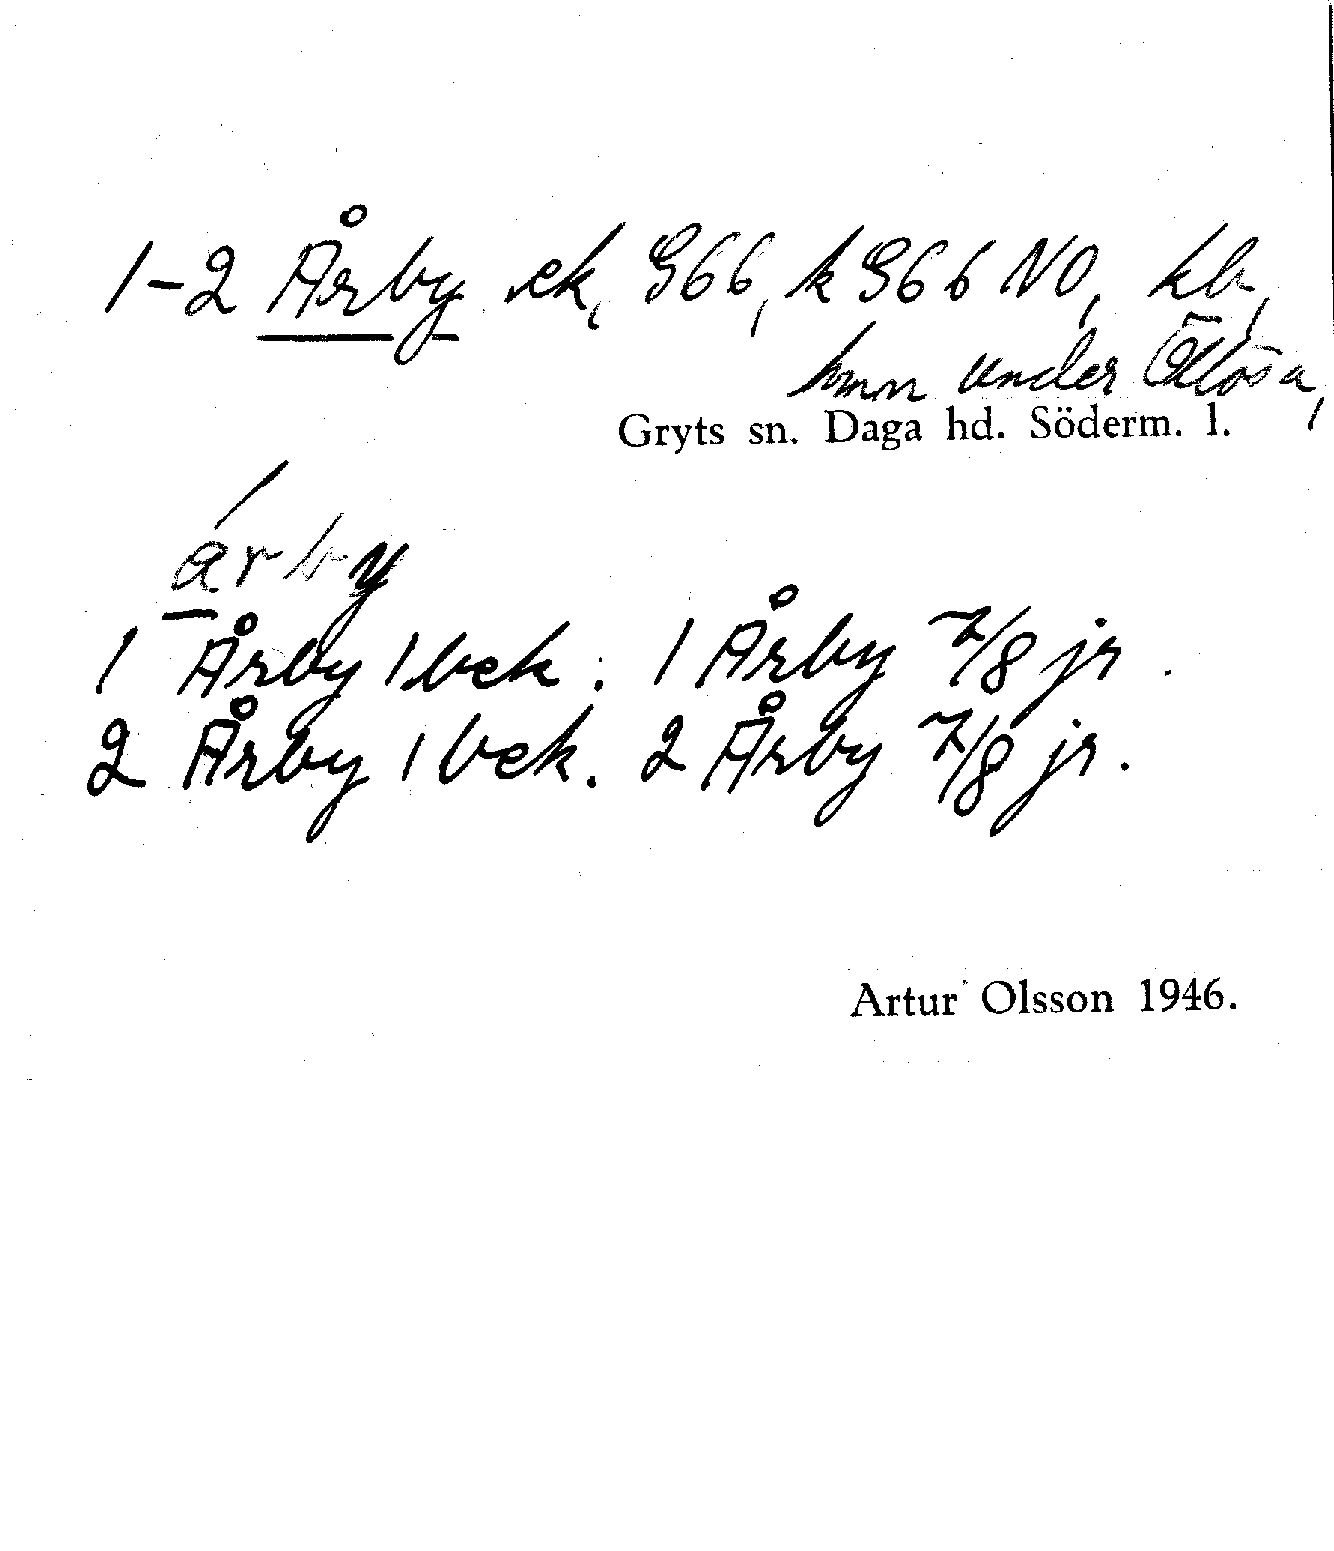 1-2 Årby ek, G66, k G66 NO, kb,
hmn under Öllösa,
Gryts sn. Daga hd. Söderm. l.
árby
1 Årby 1 bek. 1 Årby 7/8 jr.
2 Årby 1 bek. 2 Årby 7/8 jr.
Artur Olsson 1946.